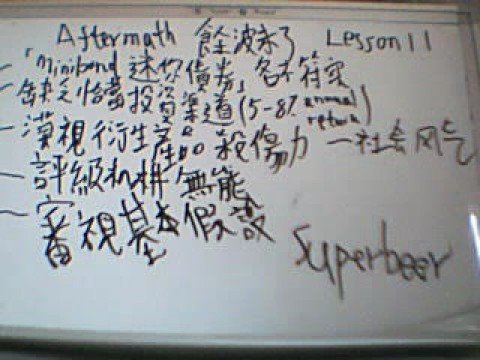 Aftermath 餘波未了 Lesson 11
- 「minibond 迷你債券」名不符实
- 缺乏恰當投資渠道 (5-8% annual return)
- 漠視衍生產品殺傷力 — 社会风气
- 評級机構無能
- 審視基本假設
Superbeer